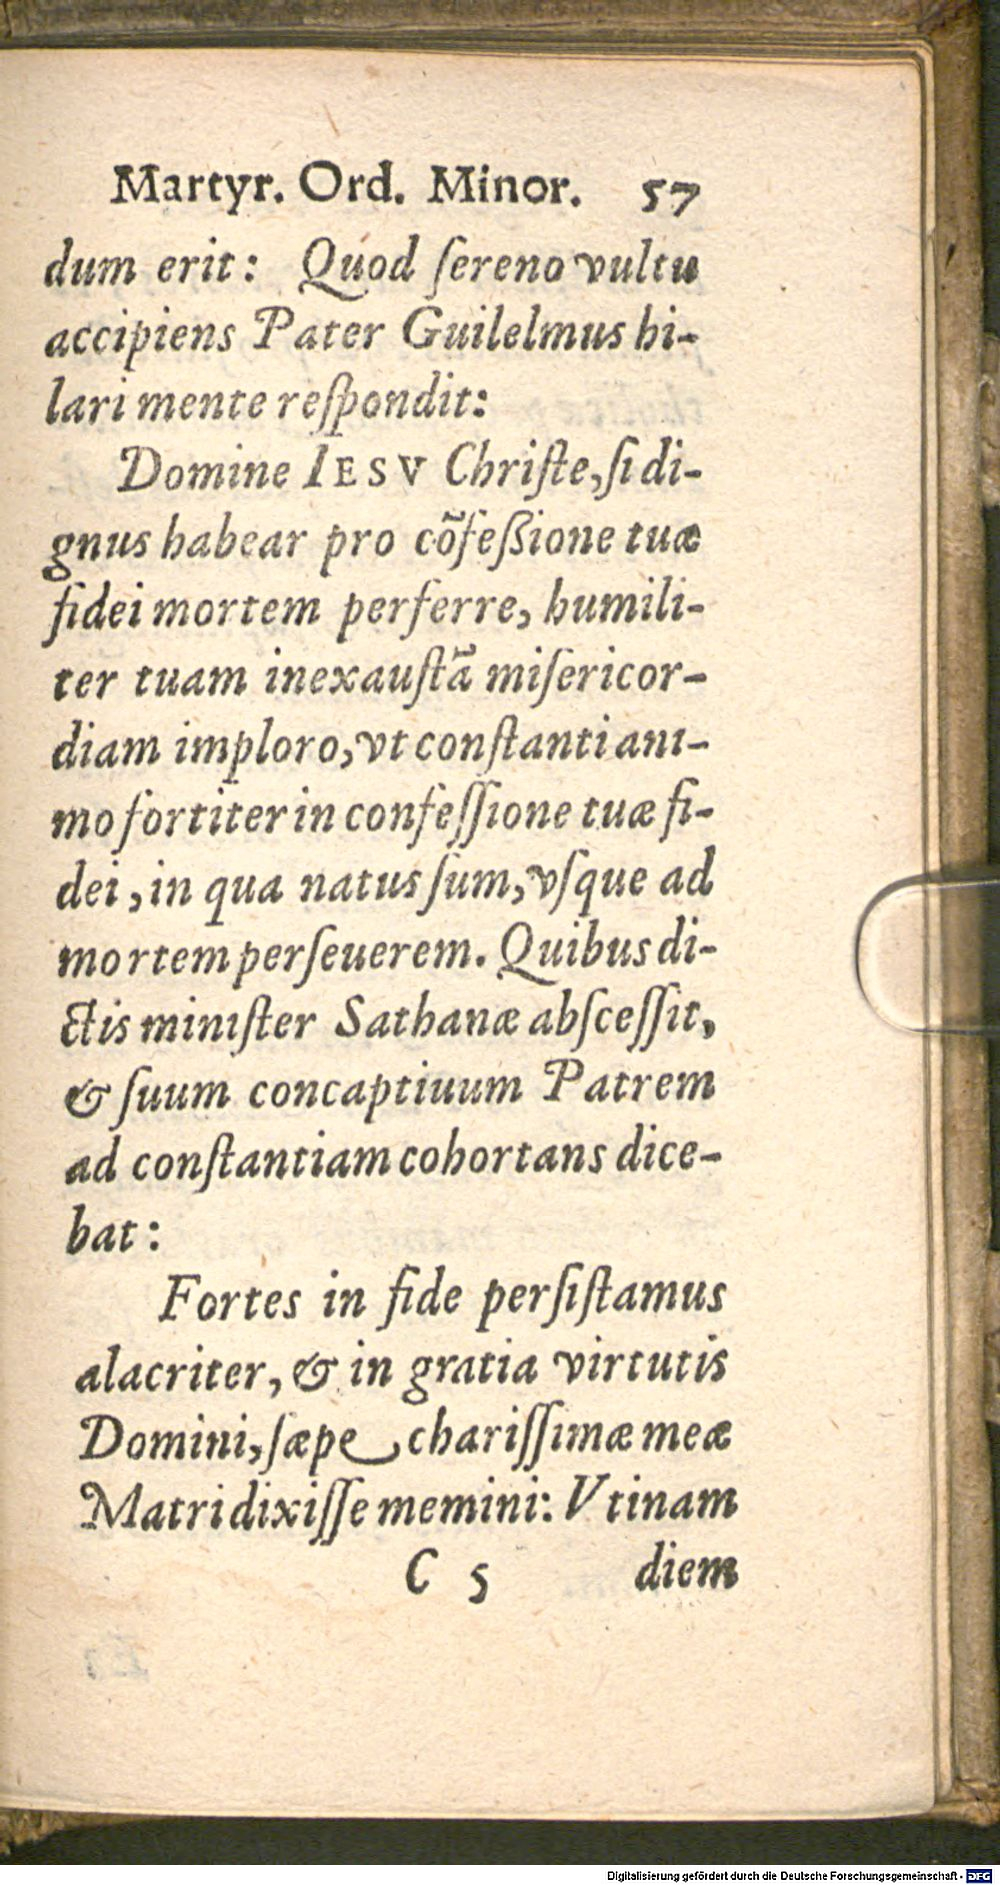 Martyr. Ord. Minor. 57
dum erit: Quod ſereno vultu
accipiens Pater Guilelmus hi-
lari mente reſpondit:
Domine IESV Chriſte, ſi di-
gnus habear pro cõfeßione tuæ
fidei mortem perferre, humili-
ter tuam inexauſtã miſericor-
diam imploro, vt conſtanti ani-
mo fortiter in confeſſione tuæ fi-
dei, in qua natus ſum, vſque ad
mortem perſeuerem. Quibus di-
ctis miniſter Sathanæ abſceſſit,
& ſuum concaptiuum Patrem
ad conſtantiam cohortans dice-
bat:
Fortes in fide perſiſtamus
alacriter, & in gratia virtutis
Domini, ſæpe chariſſimæ meæ
Matri dixiſſe memini: Vtinam
C 5 diem
Digitalisierung gefördert durch die Deutsche Forschungsgemeinschaft - DFG